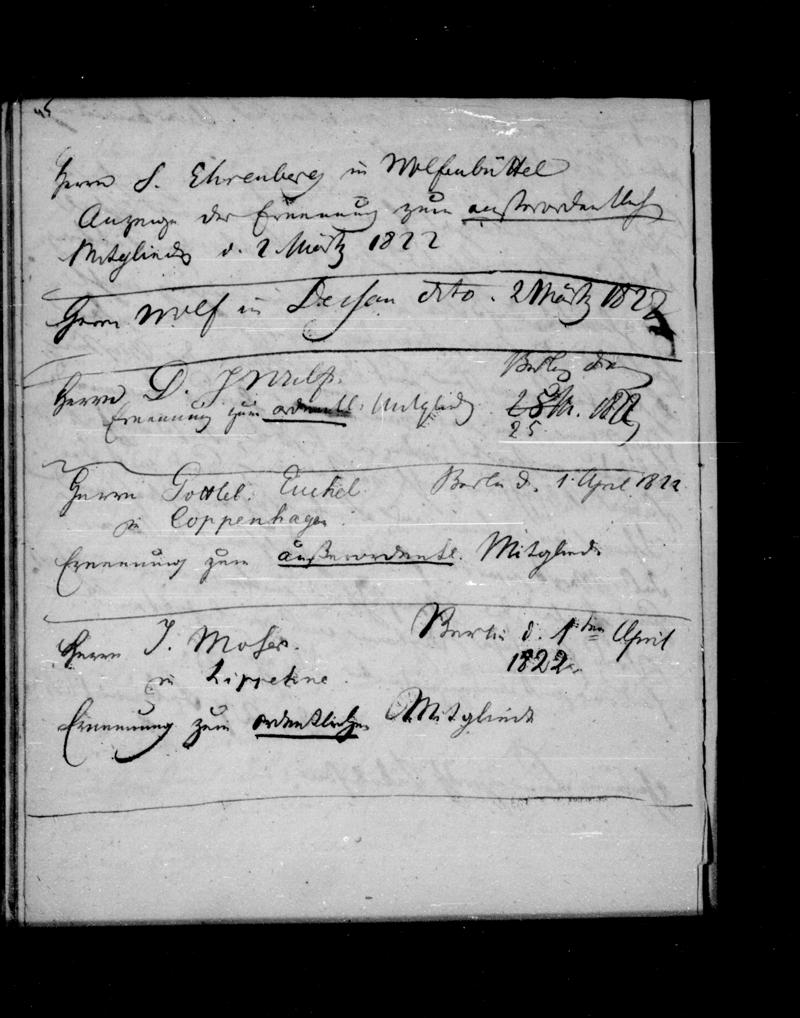 Herrn S. Ehrenberg in Wolfenbüttel
Anzeige der Ernennung zum außerordentlich
Mitgliede d. 2 März 1822
Herrn Wolf in Dessau dito. 2 März 1822
Herrn D.
Berlin den
Ernennung zum ordentl. Mitglied
25
Herrn Gottleb. Euchel Berlin d. 1 April 1822
in Coppenhagen.
Ernennung zum außerordentl. Mitgliede
Herrn J. Moser. Berlin d. 1ten April
in Lippehne. 1822.
Ernennung zum ordentlichen Mitgliede